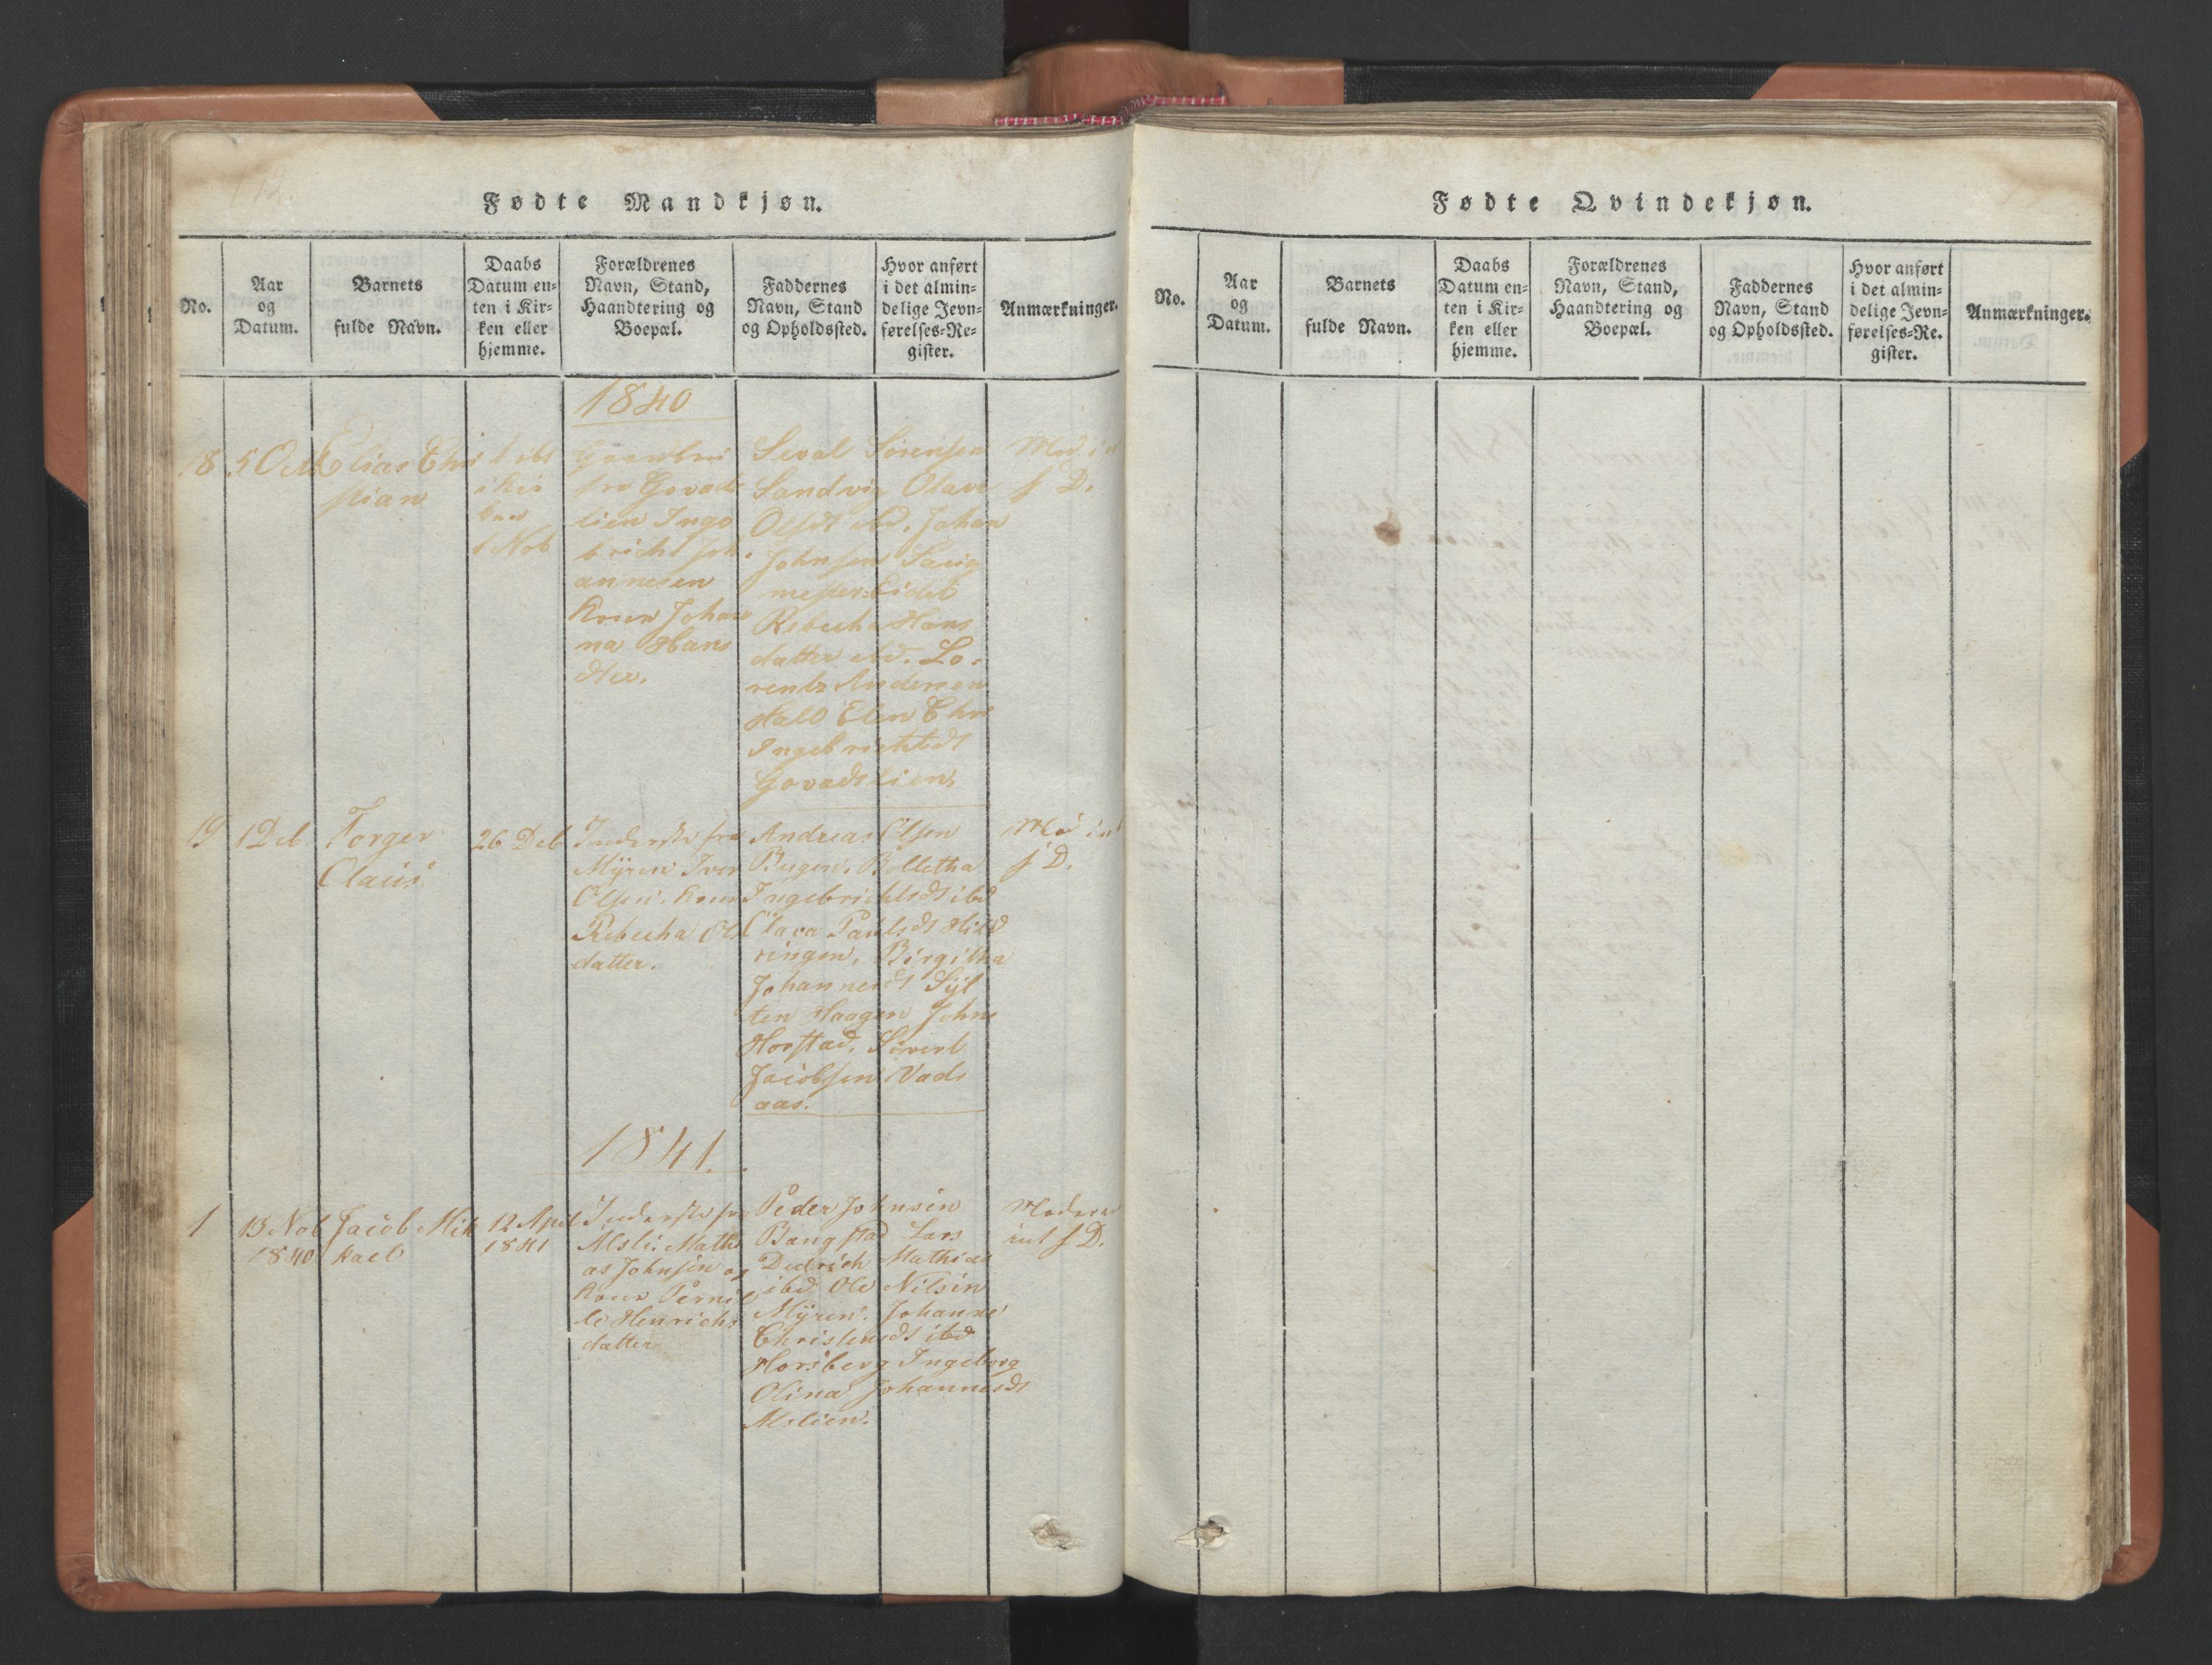 112.
Fødte Mandkjøn.
No.
Aar
og
Datum.
Barnets
fulde Navn.
Daabs
Datum en-
ten i Kir-
ken eller
hjemme.
Forældrenes
Navn, Stand,
Haandtering og
Boepæl.
Faddernes
Navn, Stand
og Opholdssted.
Hvor anført
i det almin-
delige Jevn-
førelses-Re-
gister.
Anmærkninger.
1840
18
5 Oct
Elias Chri
stian
i Kir
ken
1 Nob
Gaardbru
fra Govads
lien Inge
bricht Joh
annesen
Kone Johan
na Hans
dtter.
Sival Sörensen
Sandvig Olava
Olsdt ibd. Johan
Johnsen Saug
mester Eidet
Rebecha Hans
datter ibd. Lo-
rentz Andersen
Hald Elen Chr
Ingebrichtsdt
Govadslien.
Mod in
f D.
19
1 Deb.
Torger
Claus
26 Deb
Inderste fra
Myren Iver
Olsen. Kone
Rebecha Ols
datter.
Andreas Olsen
Bugen. Bolletha
Ingebrichtsdt ibd
Olava Paulsdt Hild
ringen, Birgitha
Johannesdt Syl
ten Haagen Johns
Horstad. Siverl
Jacobsen Vads
aas.
Mo in
f D.
1841.
1
13 Nob
1840
Jacob Mik
kael
12 April
1841
Inderste fra
Alsli Mathi
as Johnsen og
Kone Pernil
le Henrichs
datter
Peder Johnsen
Bangstad Lars
Dedrich Mathias
ibd Ole Nilsen
Myren. Johanne
Christensdt ibd
Horsberg Ingeborg
Olina Johannesdt
Alslien.
Moderen
int f D.
Fødte Qvindekjøn.
No.
Aar
og
Datum.
Barnets
fulde Navn.
Daabs
Datum en-
ten i Kir-
ken eller
hjemme.
Forældrenes
Navn, Stand,
Haandtering og
Boepæl.
Faddernes
Navn, Stand
og Opholdssted.
Hvor anført
i det almin-
delige Jevn-
førelses-Re-
gister.
Anmærkninger.